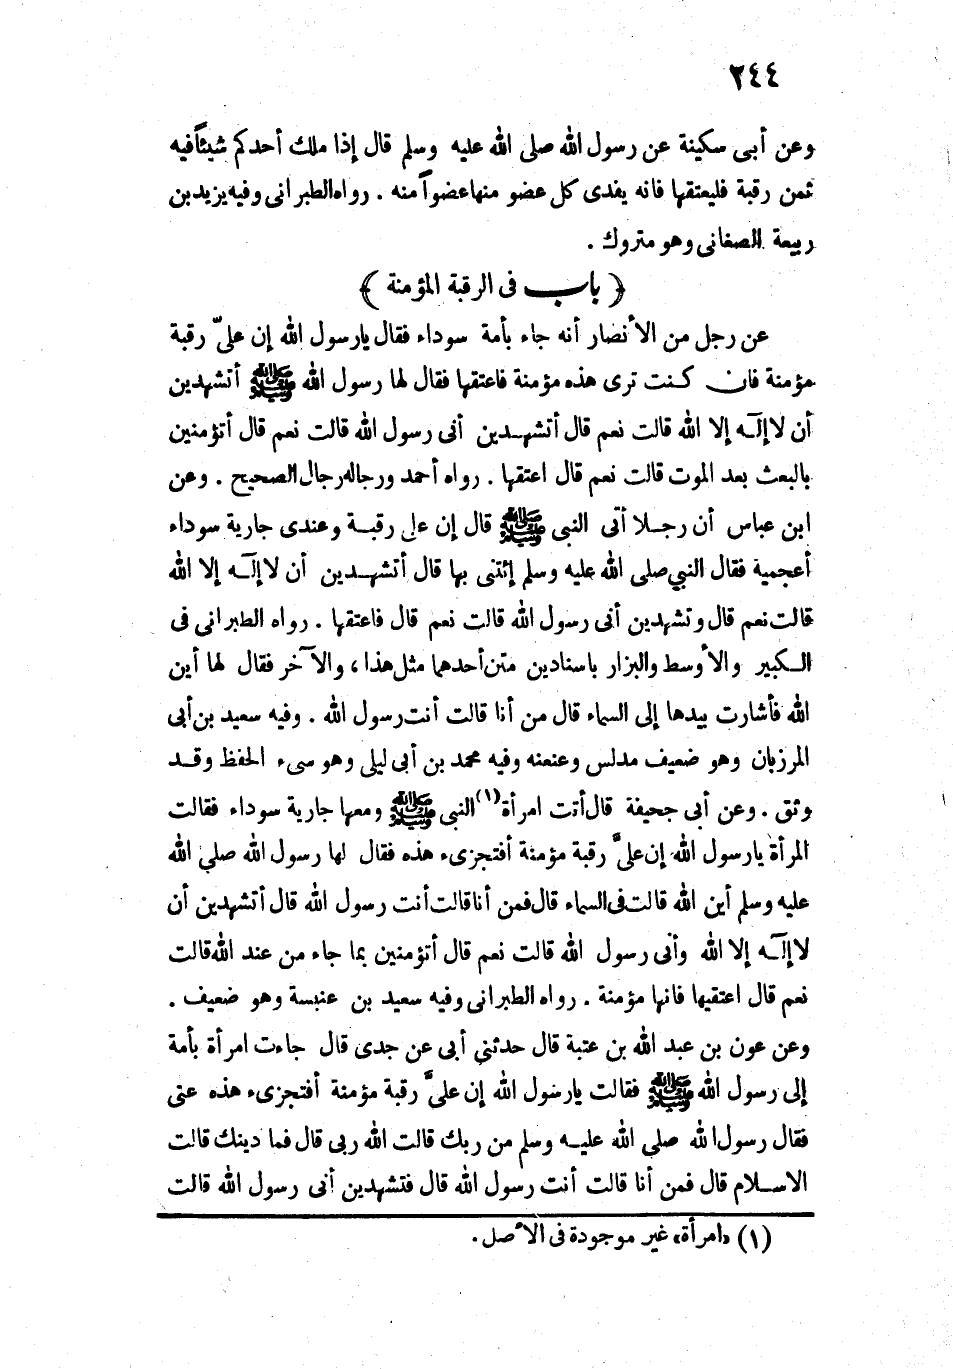 ٢٤٤
وعن أبى سكينة عن رسول الله صلى الله عليه وسلم قال إذا ملك أحدكم شيئاً فيه
ثمن رقبة فليعتقها فانه يفدى كل عضو منها عضواً منه . رواه الطبرانى وفيه يزيد بن
ربيعة الصغانى وهو متروك .
﴿ باب فى الرقبة المؤمنة ﴾
عن رجل من الأنصار أنه جاء بأمة سوداء فقال يارسول الله إن علىّ رقبة
مؤمنة فان كنت ترى هذه مؤمنة فاعتقها فقال لها رسول الله ﷺ أتشهدين
أن لا إلٓه إلا الله قالت نعم قال أتشهدين أنى رسول الله قالت نعم قال أتؤمنين
بالبعث بعد الموت قالت نعم قال اعتقها . رواه أحمد ورجاله رجال الصحيح . وعن
ابن عباس أن رجلا أتى النبى ﷺ قال إن على رقبة وعندى جارية سوداء
أعجمية فقال النبي صلى الله عليه وسلم إئتنى بها قال أتشهدين أن لا إلٓه إلا الله
قالت نعم قال وتشهدين أنى رسول الله قالت نعم قال فاعتقها . رواه الطبرانى فى
الكبير والأوسط والبزار باسنادين متن أحدهما مثل هذا ، والآخر فقال لها أين
الله فأشارت بيدها إلى السماء قال من أنا قالت أنت رسول الله . وفيه سعيد بن أبى
المرزبان وهو ضعيف مدلس وعنعنه وفيه محمد بن أبى ليلى وهو سىء الحفظ وقد
وثق . وعن أبى جحيفة قال أتت امرأة (١) النبى ﷺ ومعها جارية سوداء فقالت
المرأة يارسول الله إن علىَّ رقبة مؤمنة أفتجزىء هذه فقال لها رسول الله صلي الله
عليه وسلم أين الله قالت فى السماء قال فمن أنا قالت أنت رسول الله قال أتشهدين أن
لا إلٓه إلا الله وأنى رسول الله قالت نعم قال أتؤمنين بما جاء من عند الله قالت
نعم قال اعتقيها فانها مؤمنة . رواه الطبرانى وفيه سعيد بن عنبسة وهو ضعيف .
وعن عون بن عبد الله بن عتبة قال حدثني أبى عن جدى قال جاءت امرأة بأمة
إلى رسول الله ﷺ فقالت يارسول الله إن علىَّ رقبة مؤمنة أفتجزىء هذه عنى
فقال رسول الله صلي الله عليه وسلم من ربك قالت الله ربى قال فما دينك قالت
الاسلام قال فمن أنا قالت أنت رسول الله قال فتشهدين أنى رسول الله قالت
(١) «امرأة» غير موجودة فى الأصل .